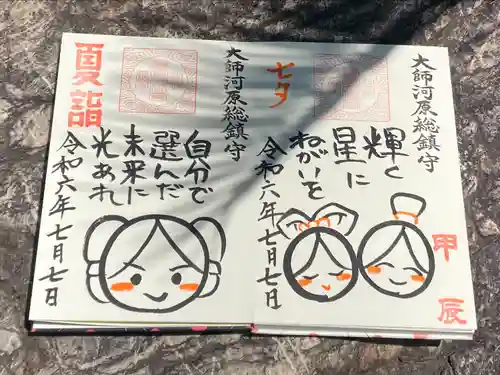 大師河原総鎮守
甲辰
輝く
星に
ねがいを
七夕
令和六年七月七日
大師河原総鎮守
自分で
選んだ
未来に
光あれ
夏詣
令和六年七月七日